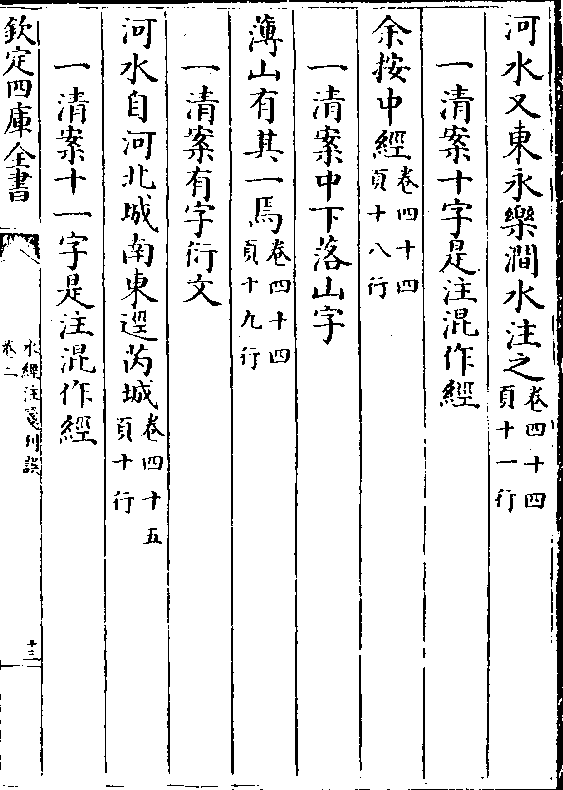 河水又東永樂澗水注之卷四十四頁十一行
一清案十字是注混作經
余按中經卷四十四頁十八行
一清案中下落山字
薄山有其一焉卷四十四頁十九行
一清案有字衍文
河水自河北城南東逕芮城卷四十五頁十行
一清案十一字是注混作經
欽定四庫全書
水經注箋刊誤
卷二
十三